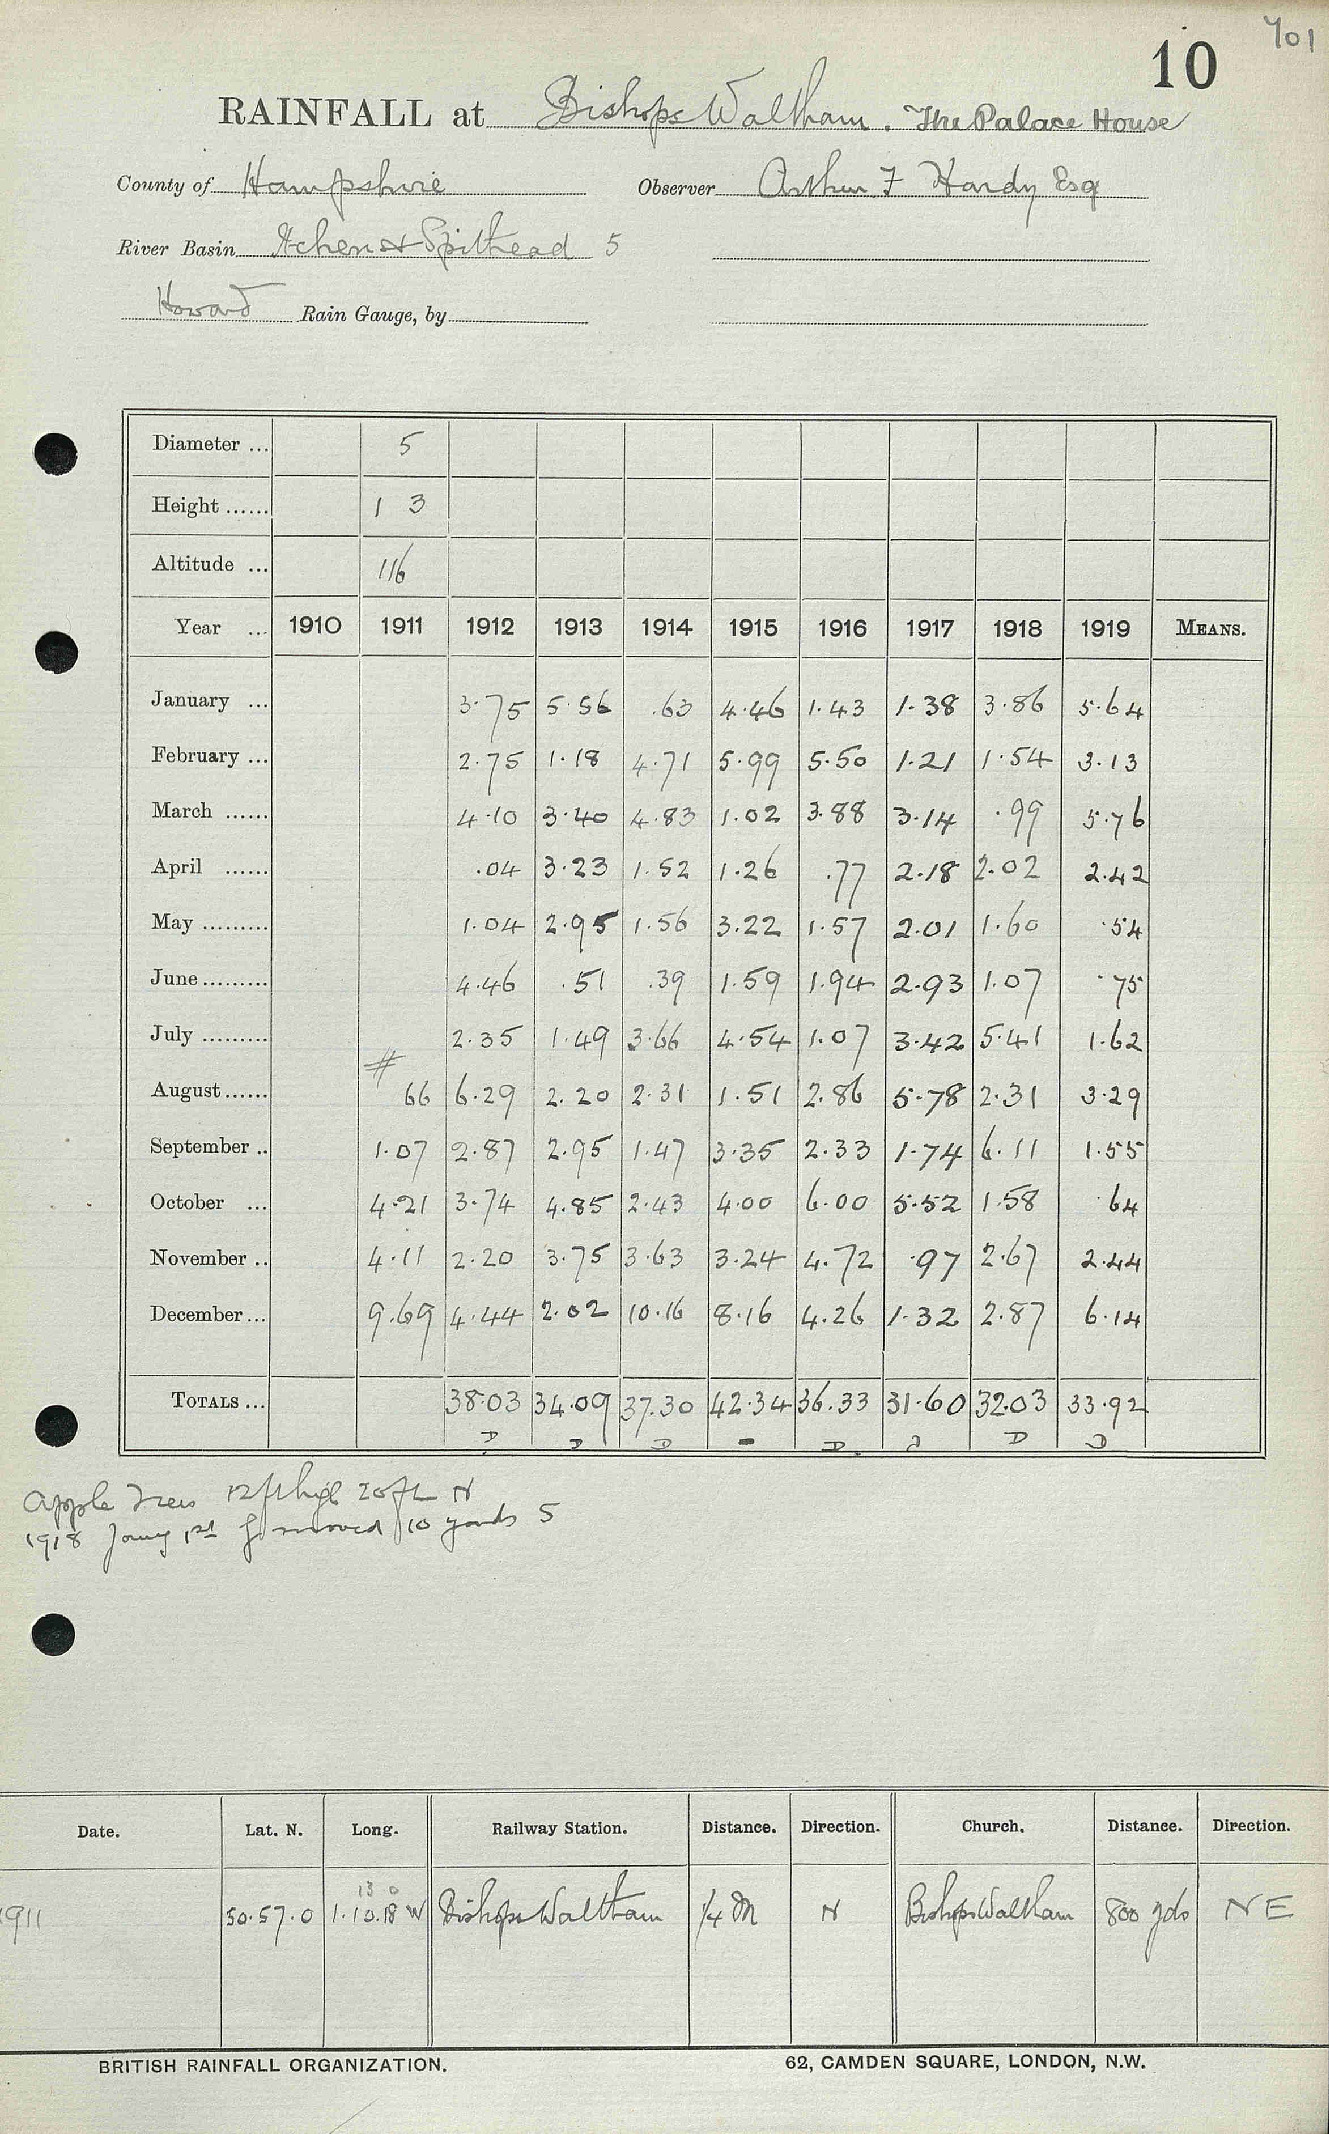 701
10
RAINFALL at Bishops Waltham. The Palace House
County of Hampshire Observer Arthur F Hardy Esq
River Basin Itchen & Spithead 5
Howard Rain Gauge, by
Diameter ... 5
Height ...... 1 3
Altitude ... 116
Year ... 1910 1911 1912 1913 1914 1915 1916 1917 1918 1919 MEANS.
January ... 3.75 5.56 .63 4.46 1.43 1.38 3.86 5.64
February ... 2.75 1.18 4.71 5.99 5.50 1.21 1.54 3.13
March ...... 4.10 3.40 4.83 1.02 3.88 3.14 .99 5.76
April ...... .04 3.23 1.52 1.26 .77 2.18 2.02 2.42
May ......... 1.04 2.95 1.56 3.22 1.57 2.01 1.60 .54
June ......... 4.46 .51 .39 1.59 1.94 2.93 1.07 .75
July ......... 2.35 1.49 3.66 4.54 1.07 3.42 5.41 1.62
August ...... # 66 6.29 2.20 2.31 1.51 2.86 5.78 2.31 3.29
September .. 1.07 2.87 2.95 1.47 3.35 2.33 1.74 6.11 1.55
October ... 4.21 3.74 4.85 2.43 4.00 6.00 5.52 1.58 .64
November .. 4.11 2.20 3.75 3.63 3.24 4.72 .97 2.67 2.44
December ... 9.69 4.44 2.02 10.16 8.16 4.26 1.32 2.87 6.14
TOTALS ... 38.03 34.09 37.30 42.34 36.33 31.60 32.03 33.92
Apple Trees 12 ft high 20 ft N
1918 Jany 1st G. moved 10 yards S
Date. Lat. N. Long. Railway Station. Distance. Direction. Church. Distance. Direction.
13 0
1911 50.57.0 1.10.18 W Bishops Waltham 1/4 M N Bishops Waltham 800 yds NE
BRITISH RAINFALL ORGANIZATION. 62, CAMDEN SQUARE, LONDON, N.W.